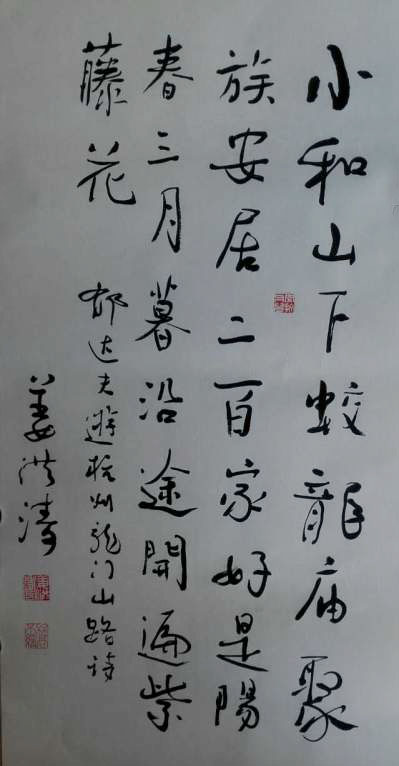 小和山下蛟龍庙聚
族安居二百家好是陽
春三月暮沿途開遍紫
藤花
郁达夫遊杭州龍门山路诗
姜洪濤